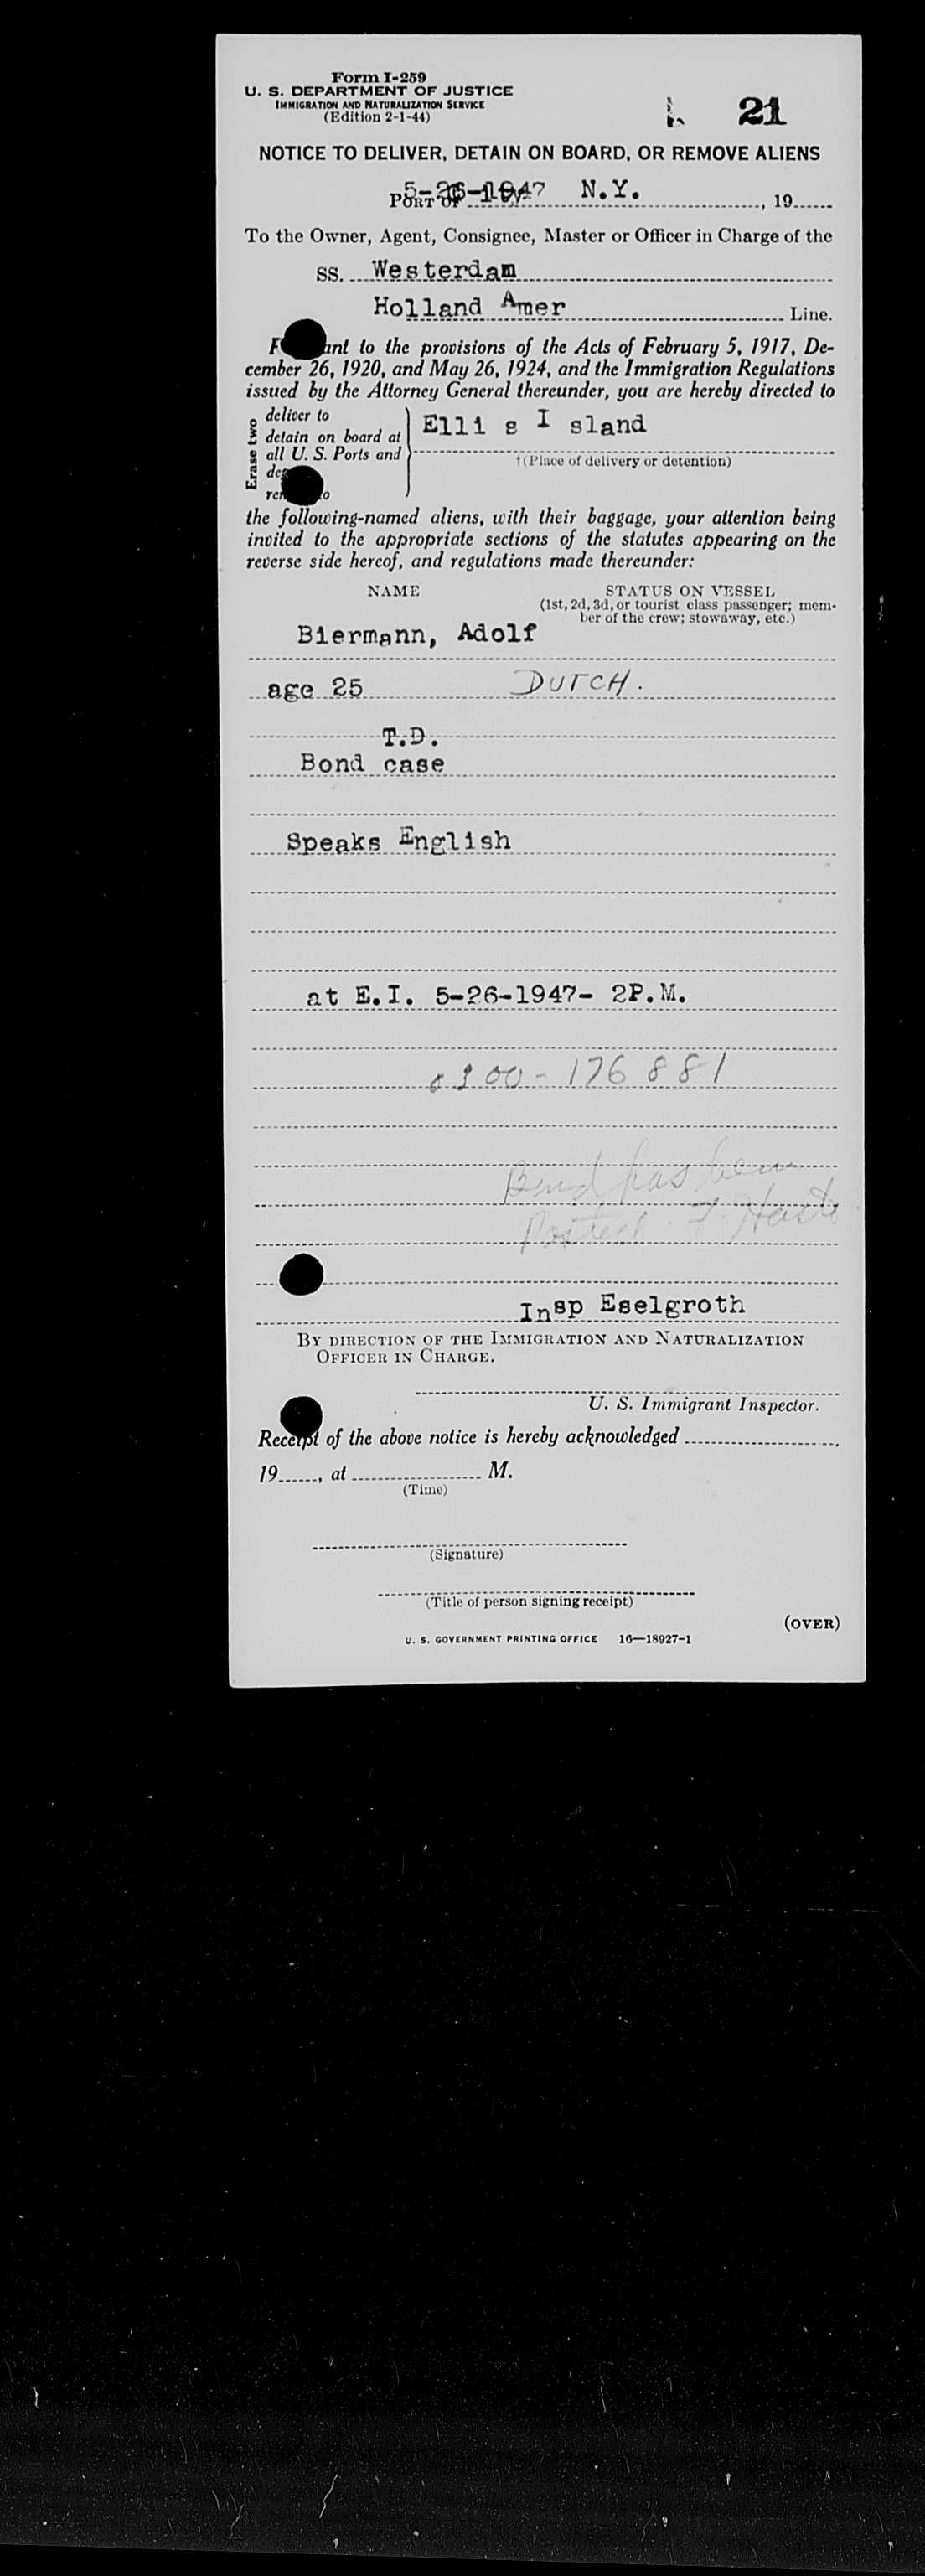 Form I-259
U. S. DEPARTMENT OF JUSTICE
IMMIGRATION AND NATURALIZATION SERVICE
(Edition 2-1-44)
21
NOTICE TO DELIVER, DETAIN ON BOARD, OR REMOVE ALIENS
PORT OF 5-26-1947 N.Y. , 19
To the Owner, Agent, Consignee, Master or Officer in Charge of the
SS. Westerdam
Holland Amer Line.
to the provisions of the Acts of February 5, 1917, De-
cember 26, 1920, and May 26, 1924, and the Immigration Regulations
issued by the Attorney General thereunder, you are hereby directed to
Erase two
deliver to
detain on board at
all U. S. Ports and
Elli s I sland
†(Place of delivery or detention)
the following-named aliens, with their baggage, your attention being
invited to the appropriate sections of the statutes appearing on the
reverse side hereof, and regulations made thereunder:
NAME STATUS ON VESSEL
(1st, 2d, 3d, or tourist class passenger; mem-
ber of the crew; stowaway, etc.)
Biermann, Adolf
age 25 DUTCH.
T.D.
Bond case
Speaks English
at E.I. 5-26-1947- 2P.M.
0300-176881
Bond has been
Posted.
Insp Eselgroth
BY DIRECTION OF THE IMMIGRATION AND NATURALIZATION
OFFICER IN CHARGE.
U. S. Immigrant Inspector.
Receipt of the above notice is hereby acknowledged ,
19 , at M.
(Time)
(Signature)
(Title of person signing receipt)
(OVER)
U. S. GOVERNMENT PRINTING OFFICE 16—18927-1